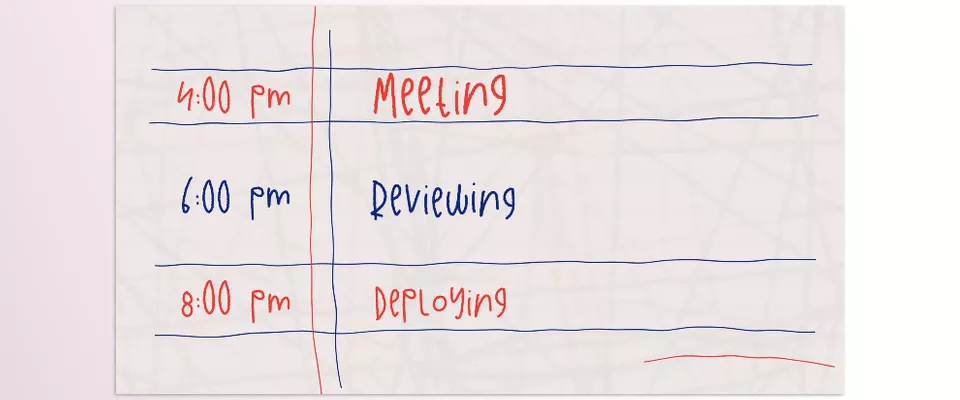 4:00 pm Meeting
6:00 pm Reviewing
8:00 pm Deploying